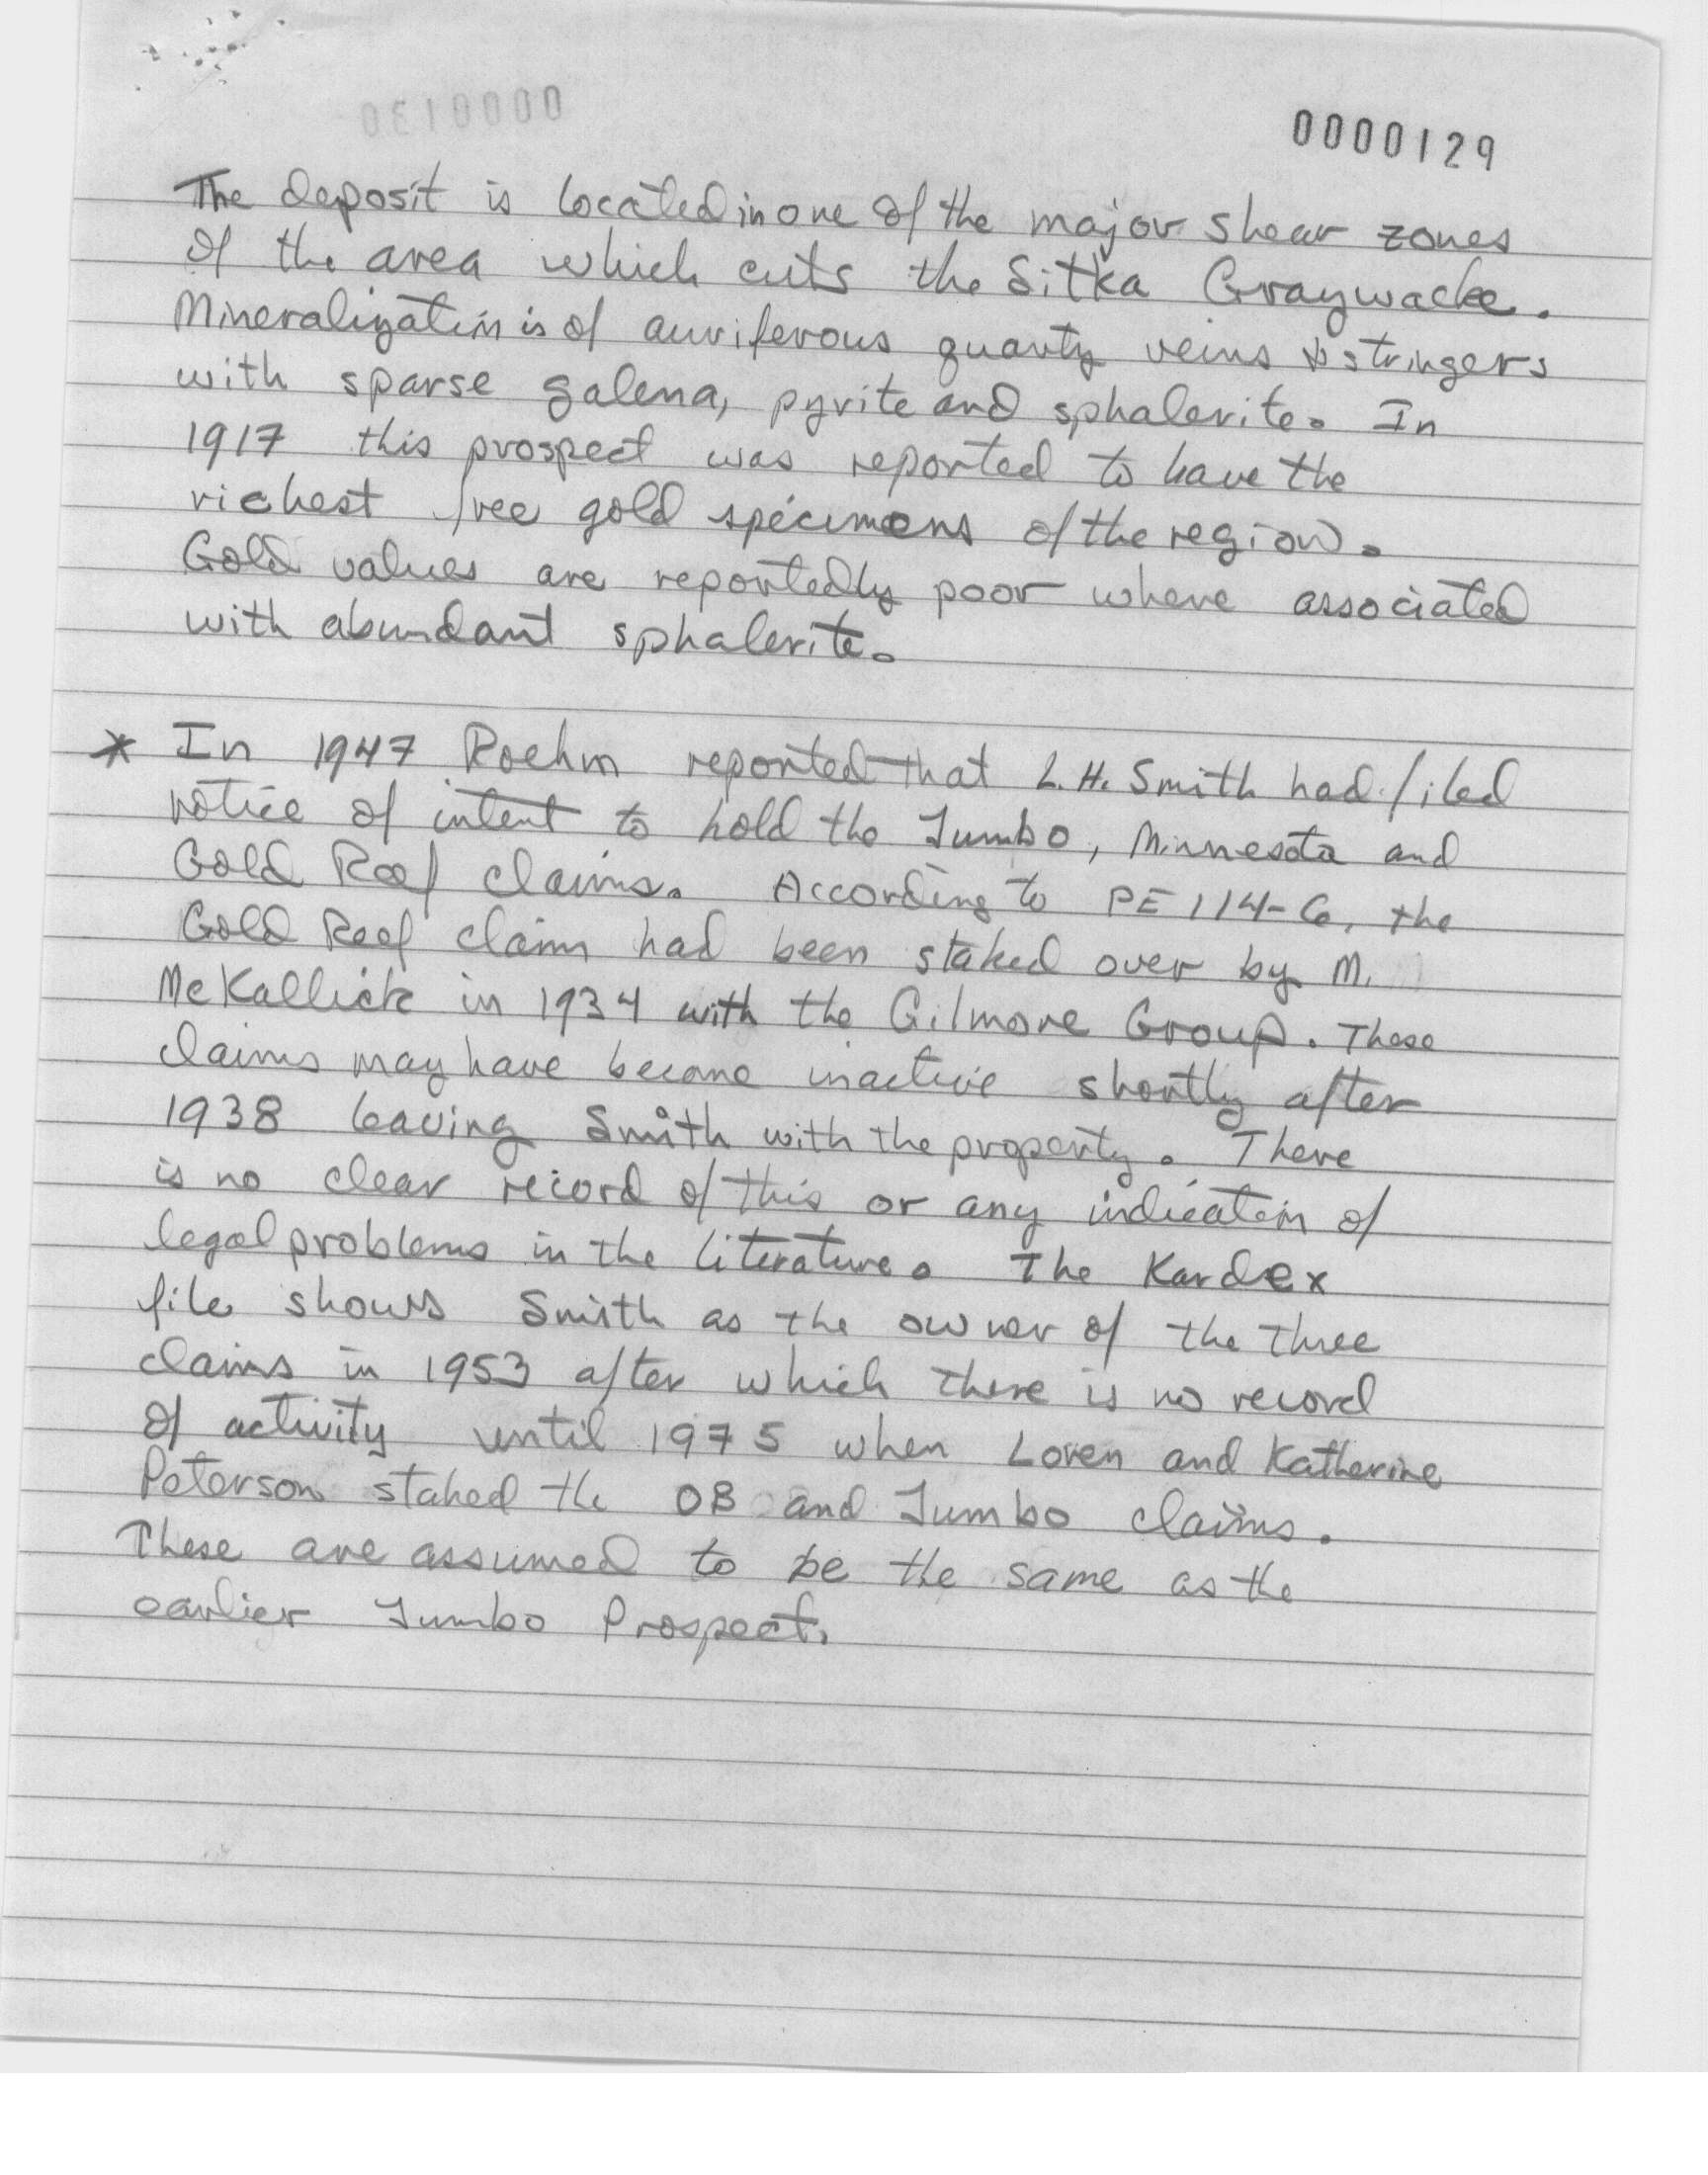 0000129
The deposit is located in one of the major shear zones
of the area which cuts the Sitka Graywacke.
Mineralization is of auriferous quartz veins & stringers
with sparse galena, pyrite and sphalerite. In
1917 this prospect was reported to have the
richest free gold specimens of the region.
Gold values are reportedly poor where associated
with abundant sphalerite.
* In 1947 Roehm reported that L.H. Smith had filed
notice of intent to hold the Jumbo, Minnesota and
Gold Reef claims. According to PE 114-6, the
Gold Reef claim had been staked over by M.
McKallick in 1934 with the Gilmore Group. These
claims may have become inactive shortly after
1938 leaving Smith with the property. There
is no clear record of this or any indication of
legal problems in the literature. The Kardex
file shows Smith as the owner of the three
claims in 1953 after which there is no record
of activity until 1975 when Loren and Katherine
Peterson staked the OB and Jumbo claims.
These are assumed to be the same as the
earlier Jumbo Prospect.